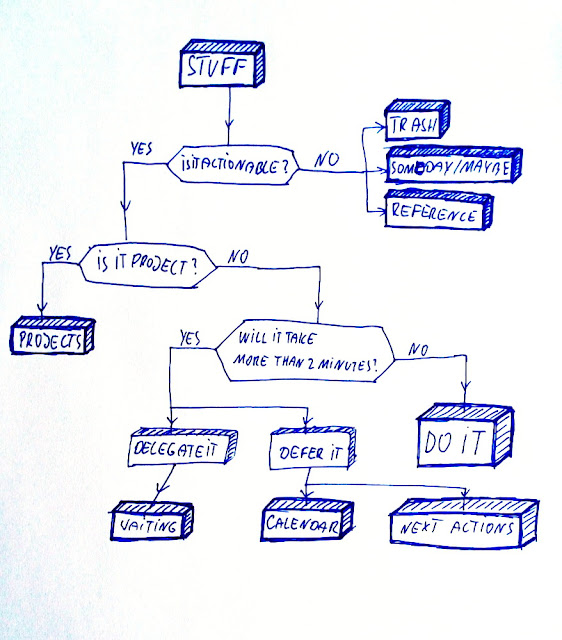 STUFF
TRASH
YES
iSiTACTiONABLE?
NO
SOMEDAY/MAYBE
REFERENCE
YES
iS iT PROJECT?
NO
PROJECTS
YES
WiLL iT TAKE
MORE THAN 2 MiNUTES?
NO
DELEGATE iT
DEFER iT
DO iT
WAiTiNG
CALENDAR
NEXT ACTIONS